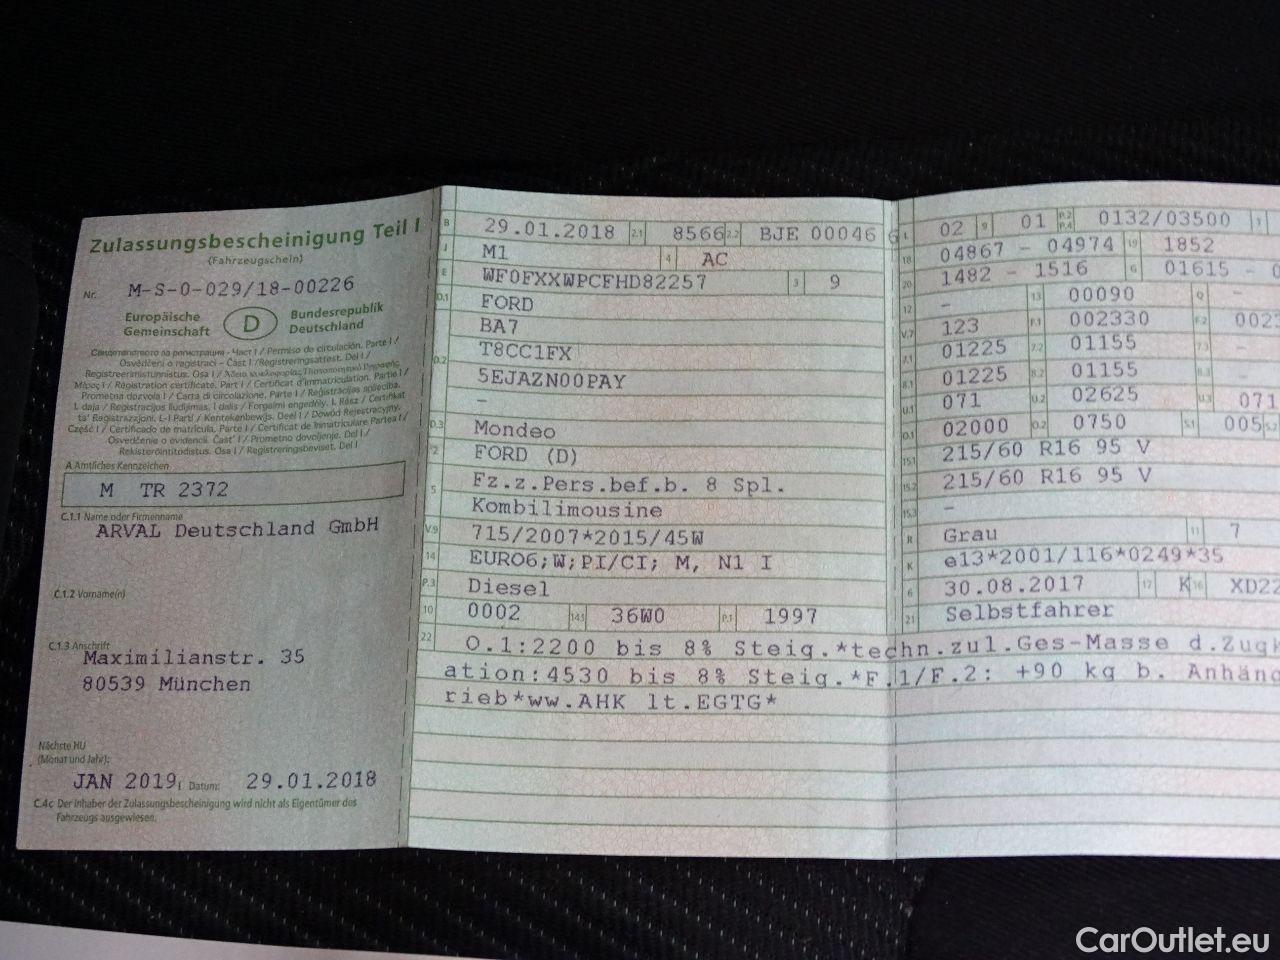 Zulassungsbescheinigung Teil I
(Fahrzeugschein)
Nr. M-S-0-029/18-00226
Europäische Gemeinschaft D Bundesrepublik Deutschland
Свидетелство за регистрация - Част I / Permiso de circulación. Parte I /
Osvědčení o registraci - Část I / Registreringsattest. Del I /
Registreerimistunnistus. Osa I /
Μέρος I / Registration certificate. Part I / Certificat d'immatriculation. Partie I /
Prometna dozvola I / Carta di circolazione. Parte I / Reģistrācijas apliecība.
I. daļa / Registracijos liudijimas. I dalis / Forgalmi engedély. I. Rész / Ċertifikat
ta' Reġistrazzjoni. L-I Parti / Kentekenbewijs. Deel I / Dowód Rejestracyjny.
Część I / Certificado de matrícula. Parte I / Certificat de înmatriculare Partea I /
Osvedčenie o evidencii. Časť I / Prometno dovoljenje. Del I /
Rekisteröintitodistus. Osa I / Registreringsbeviset. Del I
A Amtliches Kennzeichen
M TR 2372
C.1.1 Name oder Firmenname
ARVAL Deutschland GmbH
C.1.2 Vorname(n)
C.1.3 Anschrift
Maximilianstr. 35
80539 München
Nächste HU
(Monat und Jahr):
JAN 2019 Datum: 29.01.2018
C.4c Der Inhaber der Zulassungsbescheinigung wird nicht als Eigentümer des
Fahrzeugs ausgewiesen.
B 29.01.2018 2.1 8566 2.2 BJE 00046 6
J M1 4 AC
E WF0FXXWPCFHD82257 3 9
D.1 FORD
BA7
D.2 T8CC1FX
5EJAZN00PAY
–
D.3 Mondeo
2 FORD (D)
5 Fz.z.Pers.bef.b. 8 Spl.
Kombilimousine
V.9 715/2007*2015/45W
14 EURO6;W;PI/CI; M, N1 I
P.3 Diesel
10 0002 14.1 36W0 P.1 1997
L 02 9 01 P.2 P.4 0132/03500
18 04867 - 04974 19 1852
20 1482 - 1516 G 01615 -
12 – 13 00090 Q –
V.7 123 F.1 002330 F.2
7.1 01225 7.2 01155 7.3 –
8.1 01225 8.2 01155 8.3 –
U.1 071 U.2 02625 U.3 071
O.1 02000 O.2 0750 S.1 005 S.2
15.1 215/60 R16 95 V
15.2 215/60 R16 95 V
15.3 –
R Grau 11 7
K e13*2001/116*0249*35
6 30.08.2017 17 K 16 XD22
21 Selbstfahrer
22 O.1:2200 bis 8% Steig.*techn.zul.Ges-Masse d.Zugk
ation:4530 bis 8% Steig.*F.1/F.2: +90 kg b. Anhäng
rieb*ww.AHK lt.EGTG*
CarOutlet.eu